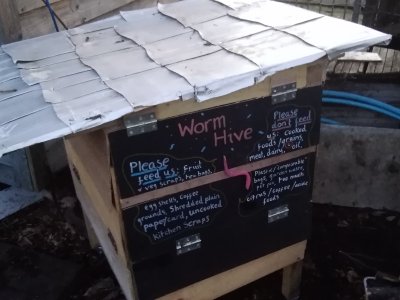 Worm
Hive
Please
feed us: Fruit
+ veg scraps, tea bags,
egg shells, coffee
grounds, Shredded plain
paper/card, uncooked
Kitchen Scraps
Please
don't feed
us: Cooked
foods/grains,
meat, dairy, oil,
Plastic/compostable
bags, garden waste,
pet poo, too much
citrus/coffee/acidic
foods